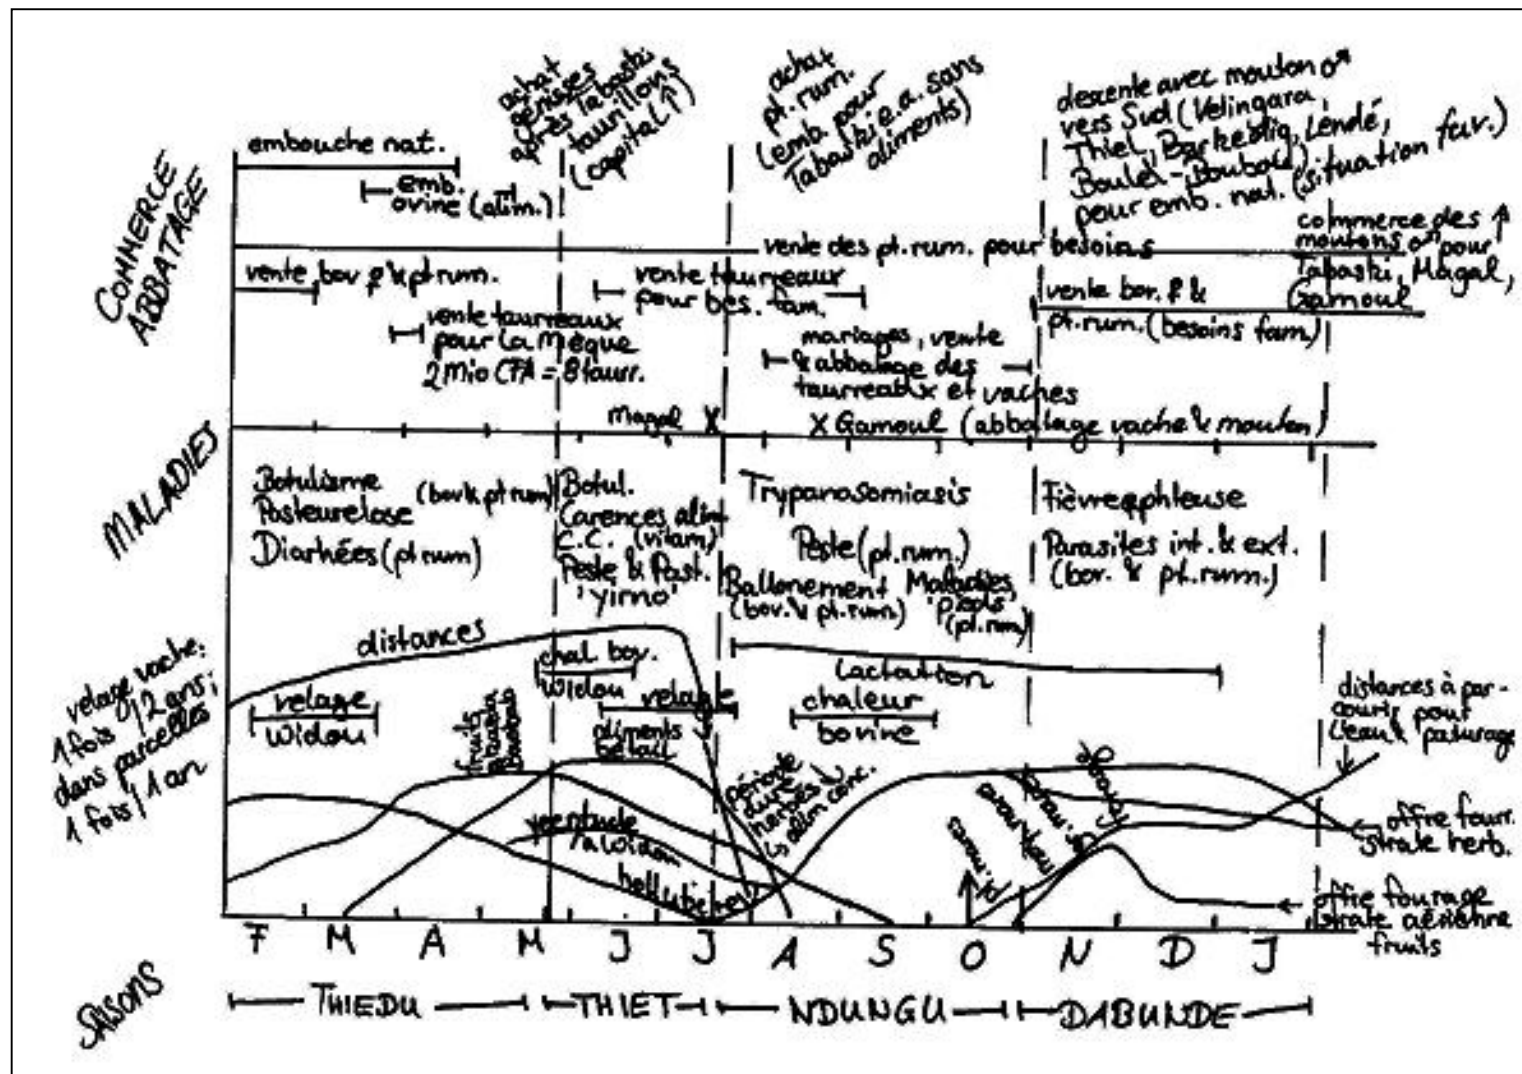 COMMERCE
ABBATAGE
embouche nat.
emb.
ovine (alim.)
achat
génisses
après Tabaski
taurillons
(capital ↑)
achat
pt. rum.
(emb. pour
Tabaski e.a. sans
aliments)
descente avec mouton ♂
vers Sud (Velingara,
Thiel, Barkédig, Lendé,
Boulel-Boubou)
pour emb. nat. (situation fav.)
vente des pt. rum. pour besoins
commerce des
moutons ♂ pour
Tabaski, Magal,
Gamoul
vente bov ♀ & pt rum.
vente taurreaux
pour bes. fam.
vente bov. ♀ &
pt. rum. (besoins fam)
vente taurreaux
pour la Mèque
2 Mio CFA = 8 taurr.
mariages, vente
& abbatage des
taurreaux et vaches
Magal X
X Gamoul (abbatage vache & mouton)
MALADIES
Botulisme
Pasteurelose (bov & pt rum)
Diarhées (pt rum)
Botul.
Carences alim
C.C. (vitam)
Peste & Past.
'yirno'
Trypanosomiasis
Peste (pt. rum.)
Ballonement
(bov. & pt. rum.)
Maladies
'pieds'
(pt. rum)
Fièvre aphteuse
Parasites int. & ext.
(bov. & pt. rum.)
velage vache:
1 fois / 2 ans;
dans parcelles
1 fois / 1 an
distances
velage
Widou
chal bov.
Widou
velage
aliments
bétail
lactation
chaleur
bovine
distances à par-
courir pour
l'eau & paturage
fruits
Baobab
période
dure
herbes
↳ alim conc.
à Widou
pt. mares
← offre four.
strate herb.
← offre fourage
strate aérienne
fruits
F M A M J J A S O N D J
SAISONS
THIEDU THIET NDUNGU DABUNDE